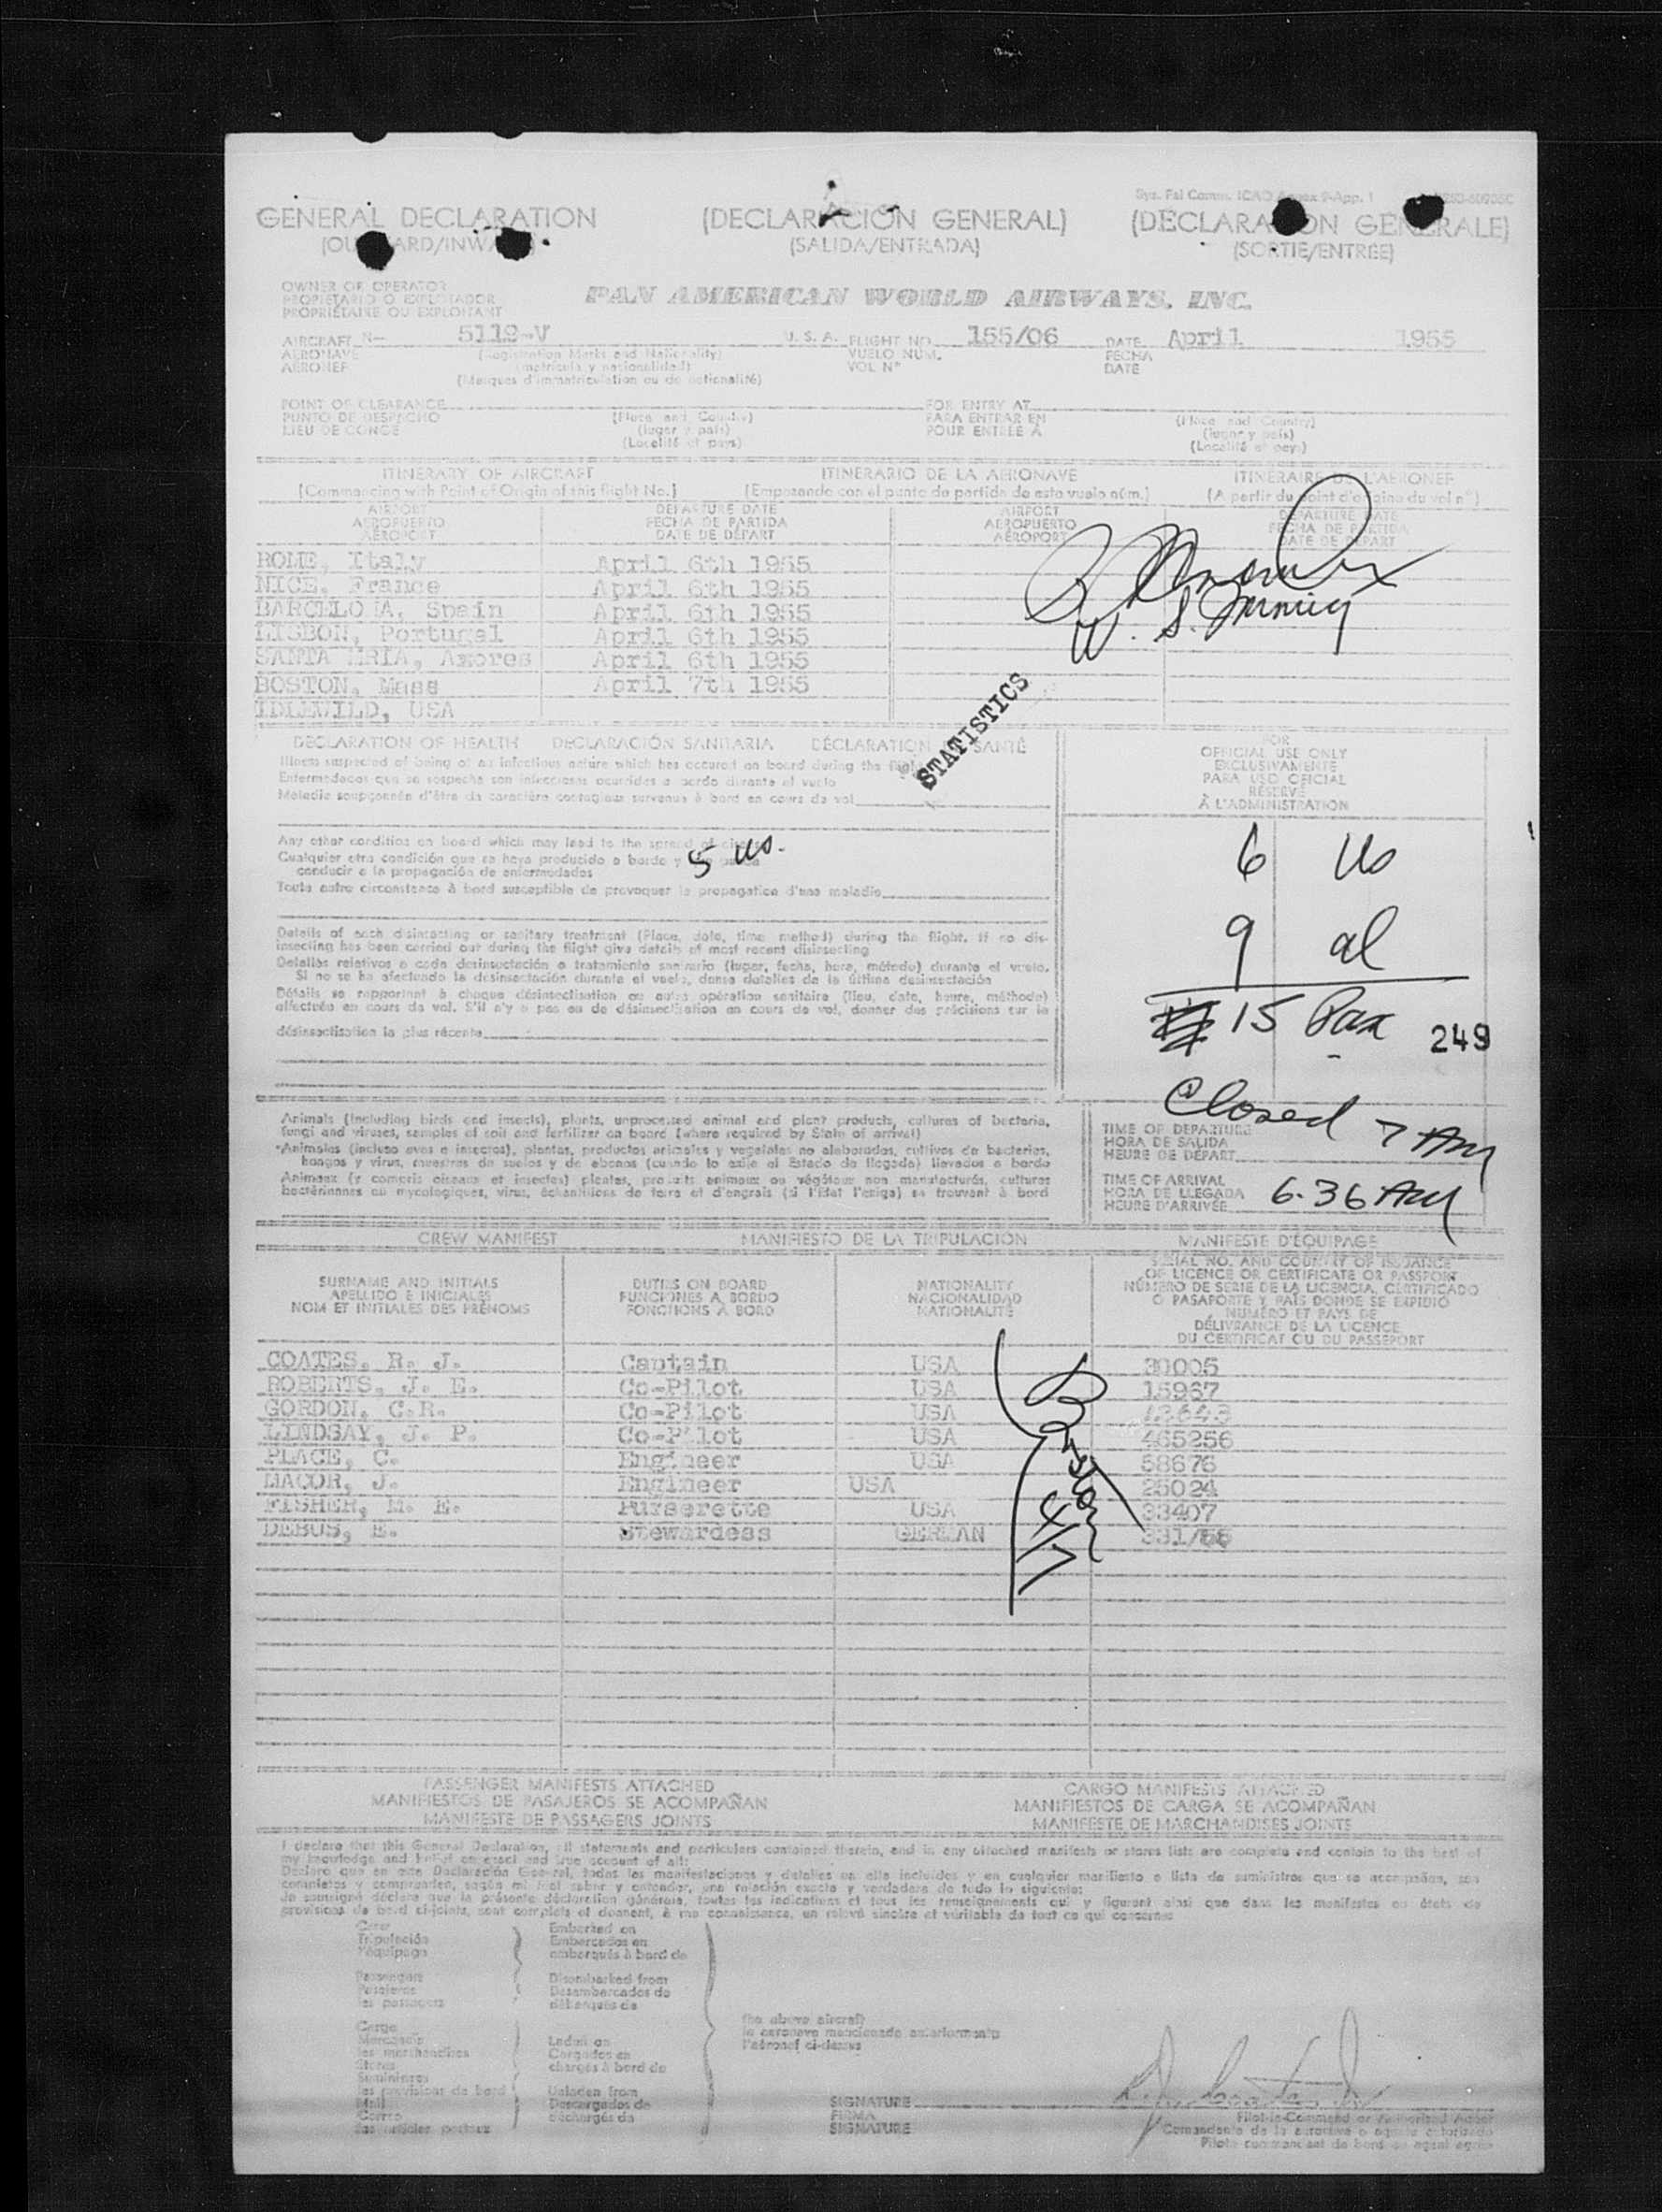 Sys. Fal Comm. ICAO Annex 9-App. 1
GENERAL DECLARATION (DECLARACIÓN GENERAL) (DÉCLARATION GÉNÉRALE)
(OUTWARD/INWARD) (SALIDA/ENTRADA) (SORTIE/ENTRÉE)
OWNER OR OPERATOR
PROPIETARIO O EXPLOTADOR
PROPRIÉTAIRE OU EXPLOITANT
PAN AMERICAN WORLD AIRWAYS, INC.
AIRCRAFT N— 5119-V U. S. A. FLIGHT NO. 155/06 DATE April 1955
AERONAVE (Registration Marks and Nationality) VUELO NÚM. FECHA
AÉRONEF (matrícula y nacionalidad) VOL N° DATE
(Marques d'immatriculation ou de nationalité)
POINT OF CLEARANCE FOR ENTRY AT
PUNTO DE DESPACHO (Place and Country) PARA ENTRAR EN (Place and Country)
LIEU DE CONGÉ (lugar y país) POUR ENTRÉE À (lugar y país)
(Localité et pays) (Localité et pays)
ITINERARY OF AIRCRAFT ITINERARIO DE LA AERONAVE ITINÉRAIRE DE L'AÉRONEF
(Commencing with Point of Origin of this flight No.) (Empezando con el punto de partida de este vuelo núm.) (A partir du point d'origine du vol n°)
AIRPORT DEPARTURE DATE AIRPORT DEPARTURE DATE
AEROPUERTO FECHA DE PARTIDA AEROPUERTO FECHA DE PARTIDA
AÉROPORT DATE DE DÉPART AÉROPORT DATE DE DÉPART
ROME, Italy April 6th 1955
NICE, France April 6th 1955
BARCELONA, Spain April 6th 1955
LISBON, Portugal April 6th 1955
SANTA MRIA, Azores April 6th 1955
BOSTON, Mass April 7th 1955
IDLEWILD, USA
W. S.
STATISTICS
DECLARATION OF HEALTH DECLARACIÓN SANITARIA DÉCLARATION DE SANTÉ
Illness suspected of being of an infectious nature which has occured on board during the flight
Enfermedades que se sospecha son infecciosas ocurridas a bordo durante el vuelo
Maladie soupçonnée d'être de caractère contagieux survenue à bord en cours de vol
FOR
OFFICIAL USE ONLY
EXCLUSIVAMENTE
PARA USO OFICIAL
RÉSERVÉ
À L'ADMINISTRATION
Any other condition on board which may lead to the spread of disease
Cualquier otra condición que se haya producido a bordo y
conducir a la propagación de enfermedades
5 us.
Toute autre circonstance à bord susceptible de provoquer la propagation d'une maladie
6 Us
9 al
15 Pax 249
Details of each disinsecting or sanitary treatment (Place, date, time method) during the flight. If no dis-
insecting has been carried out during the flight give details of most recent disinsecting
Detalles relativos a cada desinsectación o tratamiento sanitario (lugar, fecha, hora, método) durante el vuelo.
Si no se ha efectuado la desinsectación durante el vuelo, danse detalles de la última desinsectación
Détails se rapportant à chaque désinsectisation ou autre opération sanitaire (lieu, date, heure, méthode)
effectuée en cours de vol. S'il n'y a pas eu de désinsectisation en cours de vol, donner des précisions sur la
désinsectisation la plus récente
Closed 7 AM
Animals (including birds and insects), plants, unprocessed animal and plant products, cultures of bacteria,
fungi and viruses, samples of soil and fertilizer on board (where required by State of arrival)
Animales (incluso aves e insectos), plantas, productos animales y vegetales no elaborados, cultivos de bacterias,
hongos y virus, muestras de suelos y de abonos (cuando lo exija el Estado de llegada) llevados a bordo
Animaux (y compris oiseaux et insectes) plantes, produits animaux ou végétaux non manufacturés, cultures
bactériennes ou mycologiques, virus, échantillons de terre et d'engrais (si l'État l'exige) se trouvant à bord
TIME OF DEPARTURE
HORA DE SALIDA
HEURE DE DÉPART
TIME OF ARRIVAL
HORA DE LLEGADA 6.36 AM
HEURE D'ARRIVÉE
CREW MANIFEST MANIFIESTO DE LA TRIPULACIÓN MANIFESTE D'ÉQUIPAGE
SURNAME AND INITIALS DUTIES ON BOARD NATIONALITY SERIAL NO. AND COUNTRY OF ISSUANCE
APELLIDO E INICIALES FUNCIONES A BORDO NACIONALIDAD OF LICENCE OR CERTIFICATE OR PASSPORT
NOM ET INITIALES DES PRÉNOMS FONCTIONS À BORD NATIONALITÉ NÚMERO DE SERIE DE LA LICENCIA, CERTIFICADO
O PASAPORTE Y PAÍS DONDE SE EXPIDIÓ
NUMÉRO ET PAYS DE
DÉLIVRANCE DE LA LICENCE
DU CERTIFICAT OU DU PASSEPORT
COATES, R. J. Captain USA 30005
ROBERTS, J. E. Co-Pilot USA 15967
GORDON, C.R. Co-Pilot USA
LINDSAY, J. P. Co-Pilot USA 465256
PLACE, C. Engineer USA 58676
MACOR, J. Engineer USA 25024
FISHER, M. E. Purserette USA 33407
DEBUS, E. Stewardess GERMAN
Boston 4/7
PASSENGER MANIFESTS ATTACHED CARGO MANIFESTS ATTACHED
MANIFIESTOS DE PASAJEROS SE ACOMPAÑAN MANIFIESTOS DE CARGA SE ACOMPAÑAN
MANIFESTE DE PASSAGERS JOINTS MANIFESTE DE MARCHANDISES JOINTS
I declare that this General Declaration, all statements and particulars contained therein, and in any attached manifests or stores lists are complete and contain to the best of
my knowledge and belief an exact and true account of all:
Declaro que en esta Declaración General, todas las manifestaciones y detalles en ella incluidos y en cualquier manifiesto o lista de suministros que se acompañan, son
completos y comprenden, según mi leal saber y entender, una relación exacta y verdadera de todo lo siguiente:
Je soussigné déclare que la présente déclaration générale, toutes les indications et tous les renseignements qui y figurent ainsi que dans les manifestes ou états de
provisions de bord ci-joints, sont complets et donnent, à ma connaissance, un relevé sincère et véritable de tout ce qui concerne:
Crew Embarked on
Tripulación Embarcados en
l'équipage embarqués à bord de
Passengers Disembarked from
Pasajeros Desembarcados de
les passagers débarqués de
Cargo the above aircraft
Mercancía Laden on la aeronave mencionada anteriormente
les marchandises Cargados en l'aéronef ci-dessus
Stores chargés à bord de
Suministros
les provisions de bord Unladen from
Mail Descargados de
Correo déchargés de
les articles postaux
SIGNATURE
FIRMA
SIGNATURE
Pilot-in-Command or Authorized Agent
Comandante de la aeronave o agente autorizado
Pilote commandant de bord ou agent agréé